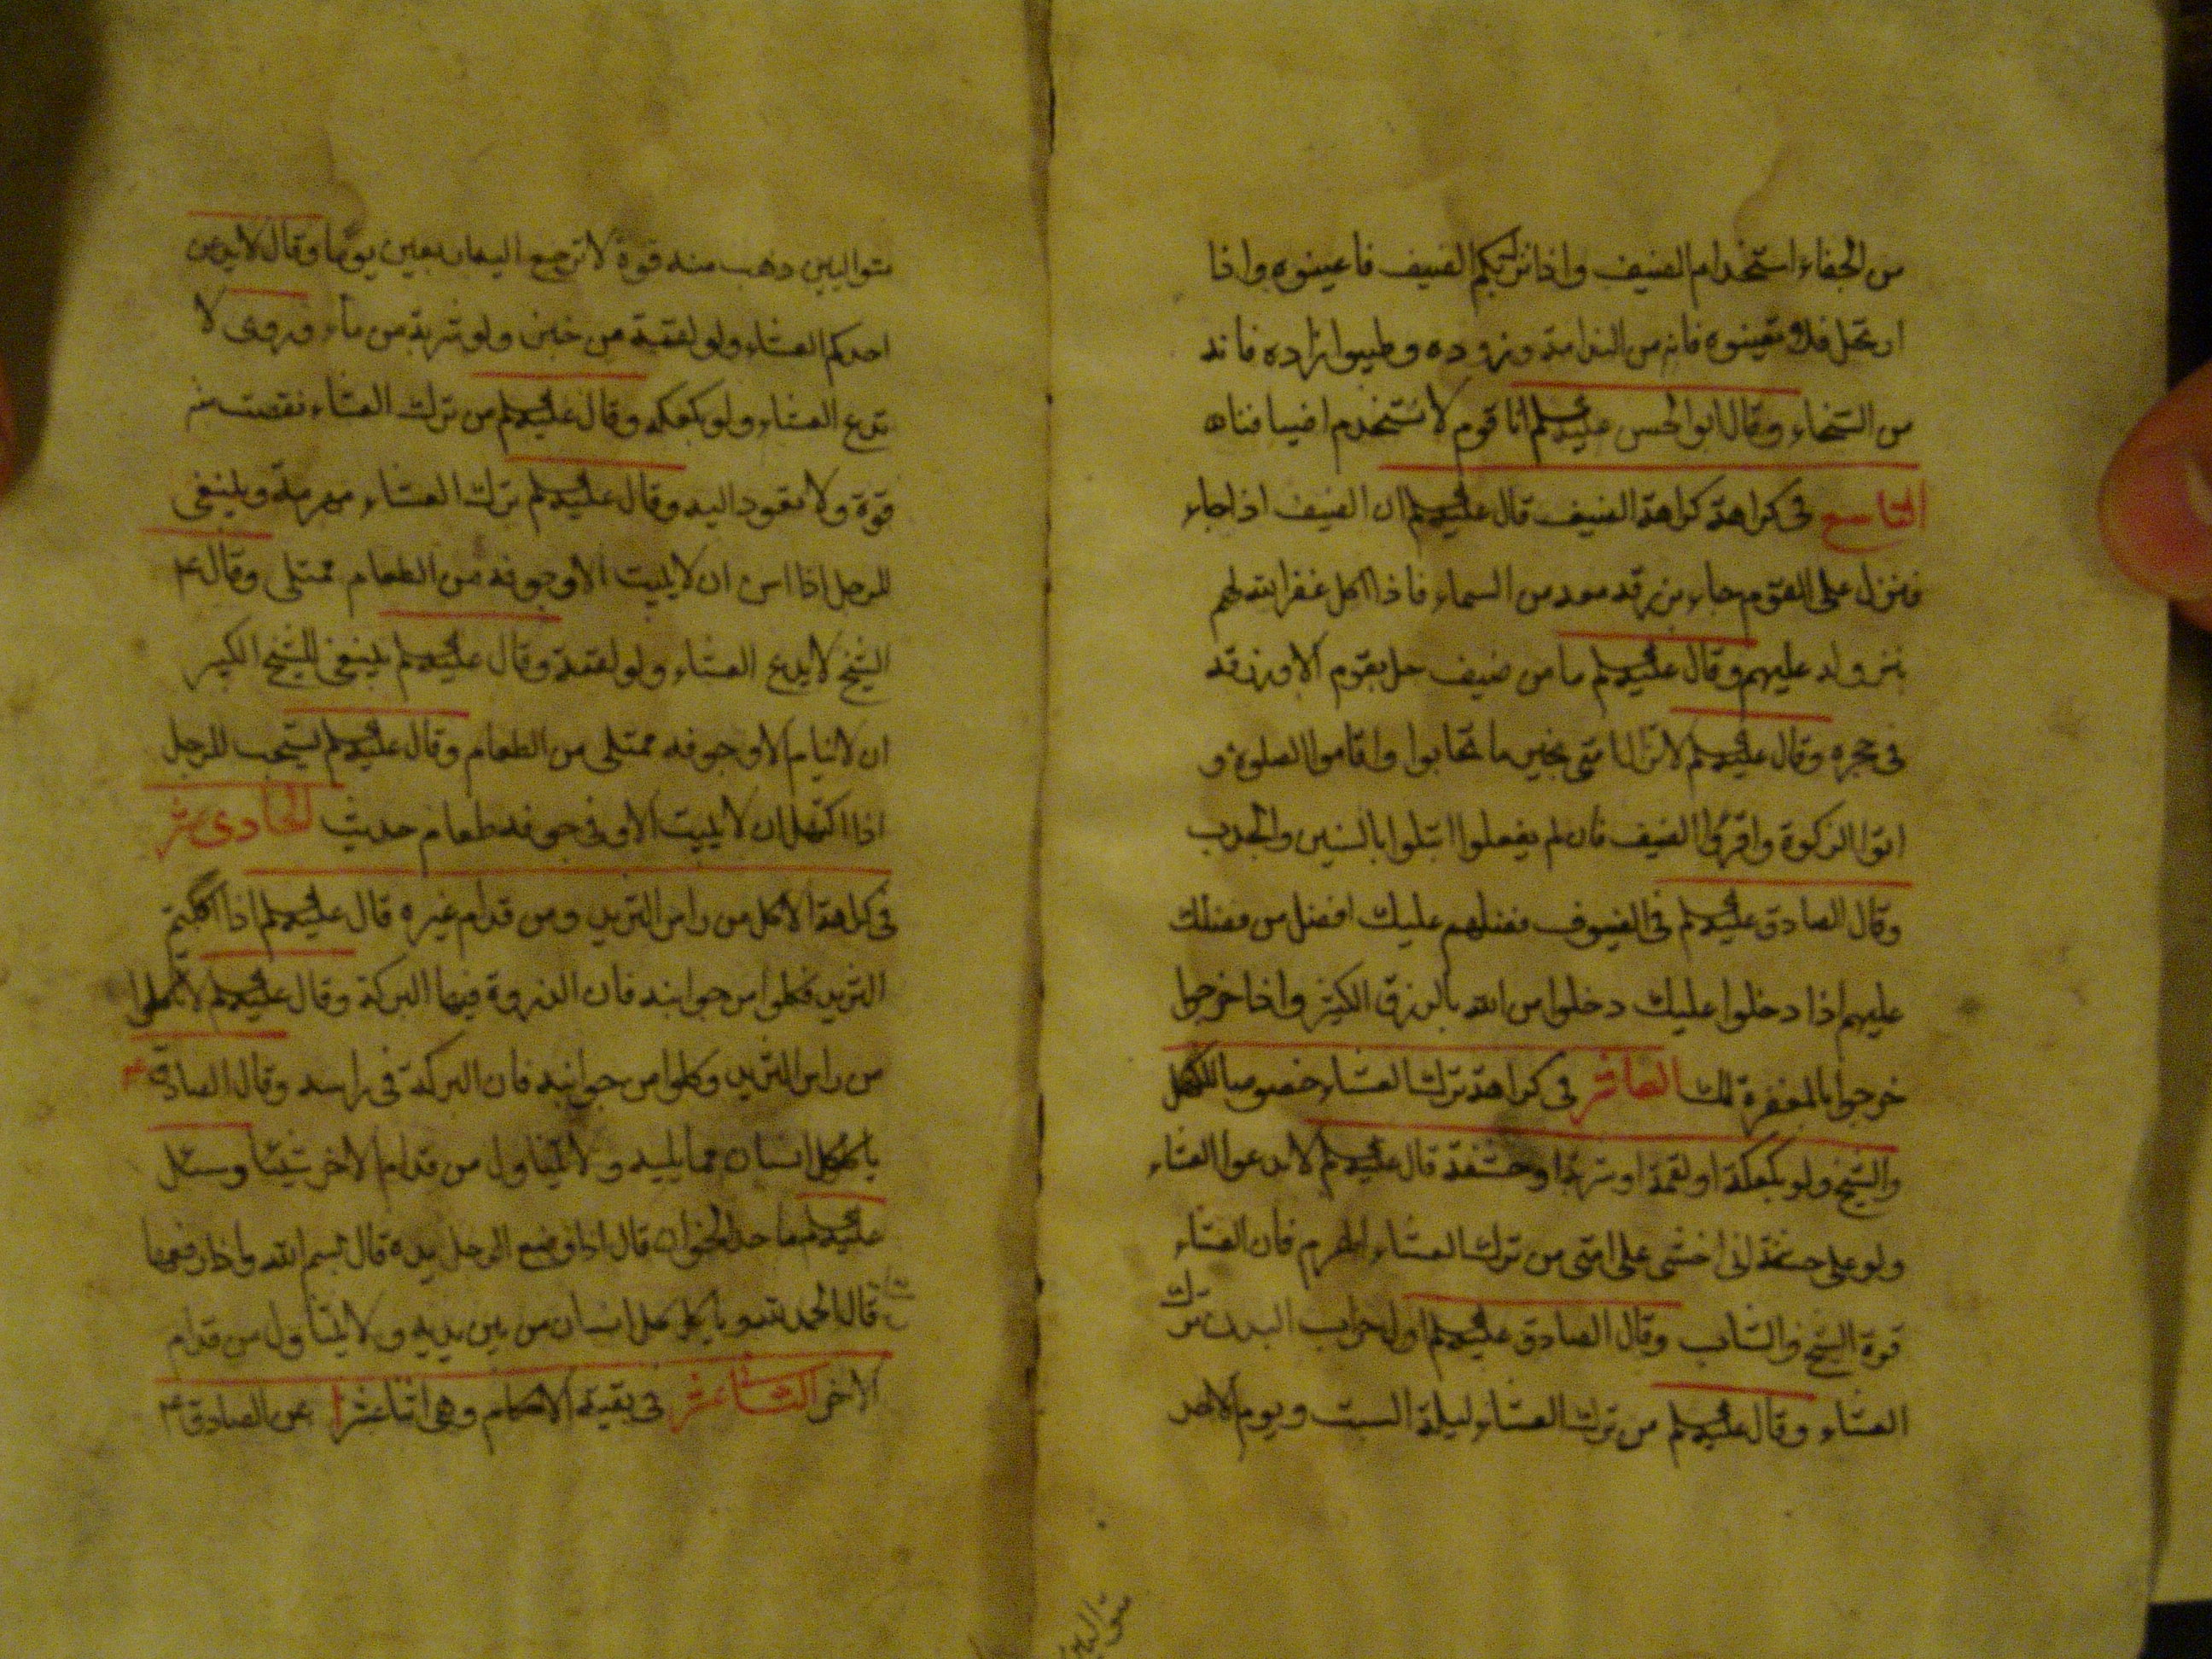 من الجفاء استخدام الضيف واذا نزل بكم الضيف فاعينوه واذا
ارتحل فلا تعينوه فانه من النذامة وزودوه وطيبوا زاده فانه
من السخاء وقال ابو الحسن عليه السلم انا قوم لا نستخدم اضيافنا
التاسع في كراهة كراهة الضيف قال عليه السلم ان الضيف اذا جاء
فنزل على القوم جاء برزقه معه من السماء فاذا اكل غفر الله لهم
بنزوله عليهم وقال عليه السلم ما من ضيف حل بقوم الا ورزقه
في حجره وقال عليه السلم لا تزال امتي بخير ما تحابوا واقاموا الصلوة و
اتوا الزكوة واقرؤا الضيف فان لم يفعلوا ابتلوا بالسنين والجدب
وقال الصادق عليه السلم في الضيوف فضلهم عليك افضل من فضلك
عليهم اذا دخلوا عليك دخلوا من الله بالرزق الكثير واذا خرجوا
خرجوا بالمغفرة لك العاشر في كراهة ترك العشاء خصوصا للكهل
والشيخ ولو بكعكة او لقمة او شربة او حشفة قال عليه السلم لا تدعوا العشاء
ولو على حشفة اني اخشى على امتي من ترك العشاء الهرم فان العشاء
قوة الشيخ والشاب وقال الصادق عليه السلم اول خراب البدن ترك
العشاء وقال عليه السلم من ترك العشاء ليلة السبت ويوم الاحد
متواليين
متواليين ذهب منه قوة لا ترجع اليه اربعين يوما وقال لا يدعن
احدكم العشاء ولو لقمة من خبز ولو شربة من ماء وروى لا
تدع العشاء ولو بكعكه وقال عليه السلم من ترك العشاء نقصت منه
قوة ولا تعود اليه وقال عليه السلم ترك العشاء مهرمة وينبغي
للرجل اذا اسن ان لا يبيت الا وجوفه من الطعام ممتلى وقال ع
الشيخ لا يدع العشاء ولو لقمة وقال عليه السلم ينبغي للشيخ الكبير
ان لا ينام الا وجوفه ممتلى من الطعام وقال عليه السلم يستحب للرجل
اذا اكتهل ان لا يبيت الا وفي جوفه طعام حديث الحادي عشر
في كراهة الاكل من راس الثريد ومن قدام غيره قال عليه السلم اذا اكلتم
الثريد فكلوا من جوانبه فان الذروة فيها البركة وقال عليه السلم لا تاكلوا
من راس الثريد وكلوا من جوانبه فان البركة في راسه وقال الصادق ع
ياكل كل انسان مما يليه ولا يتناول من قدام الاخر شيئا وسئل
عليه السلم ما حد الخوان قال اذا وضع الرجل يده قال بسم الله واذا رفعها
قال الحمد لله وياكل كل انسان من بين يديه ولا يتناول من قدام
الاخر الثاني عشر في بقية الاحكام وهي اثنا عشر ا عن الصادق ع